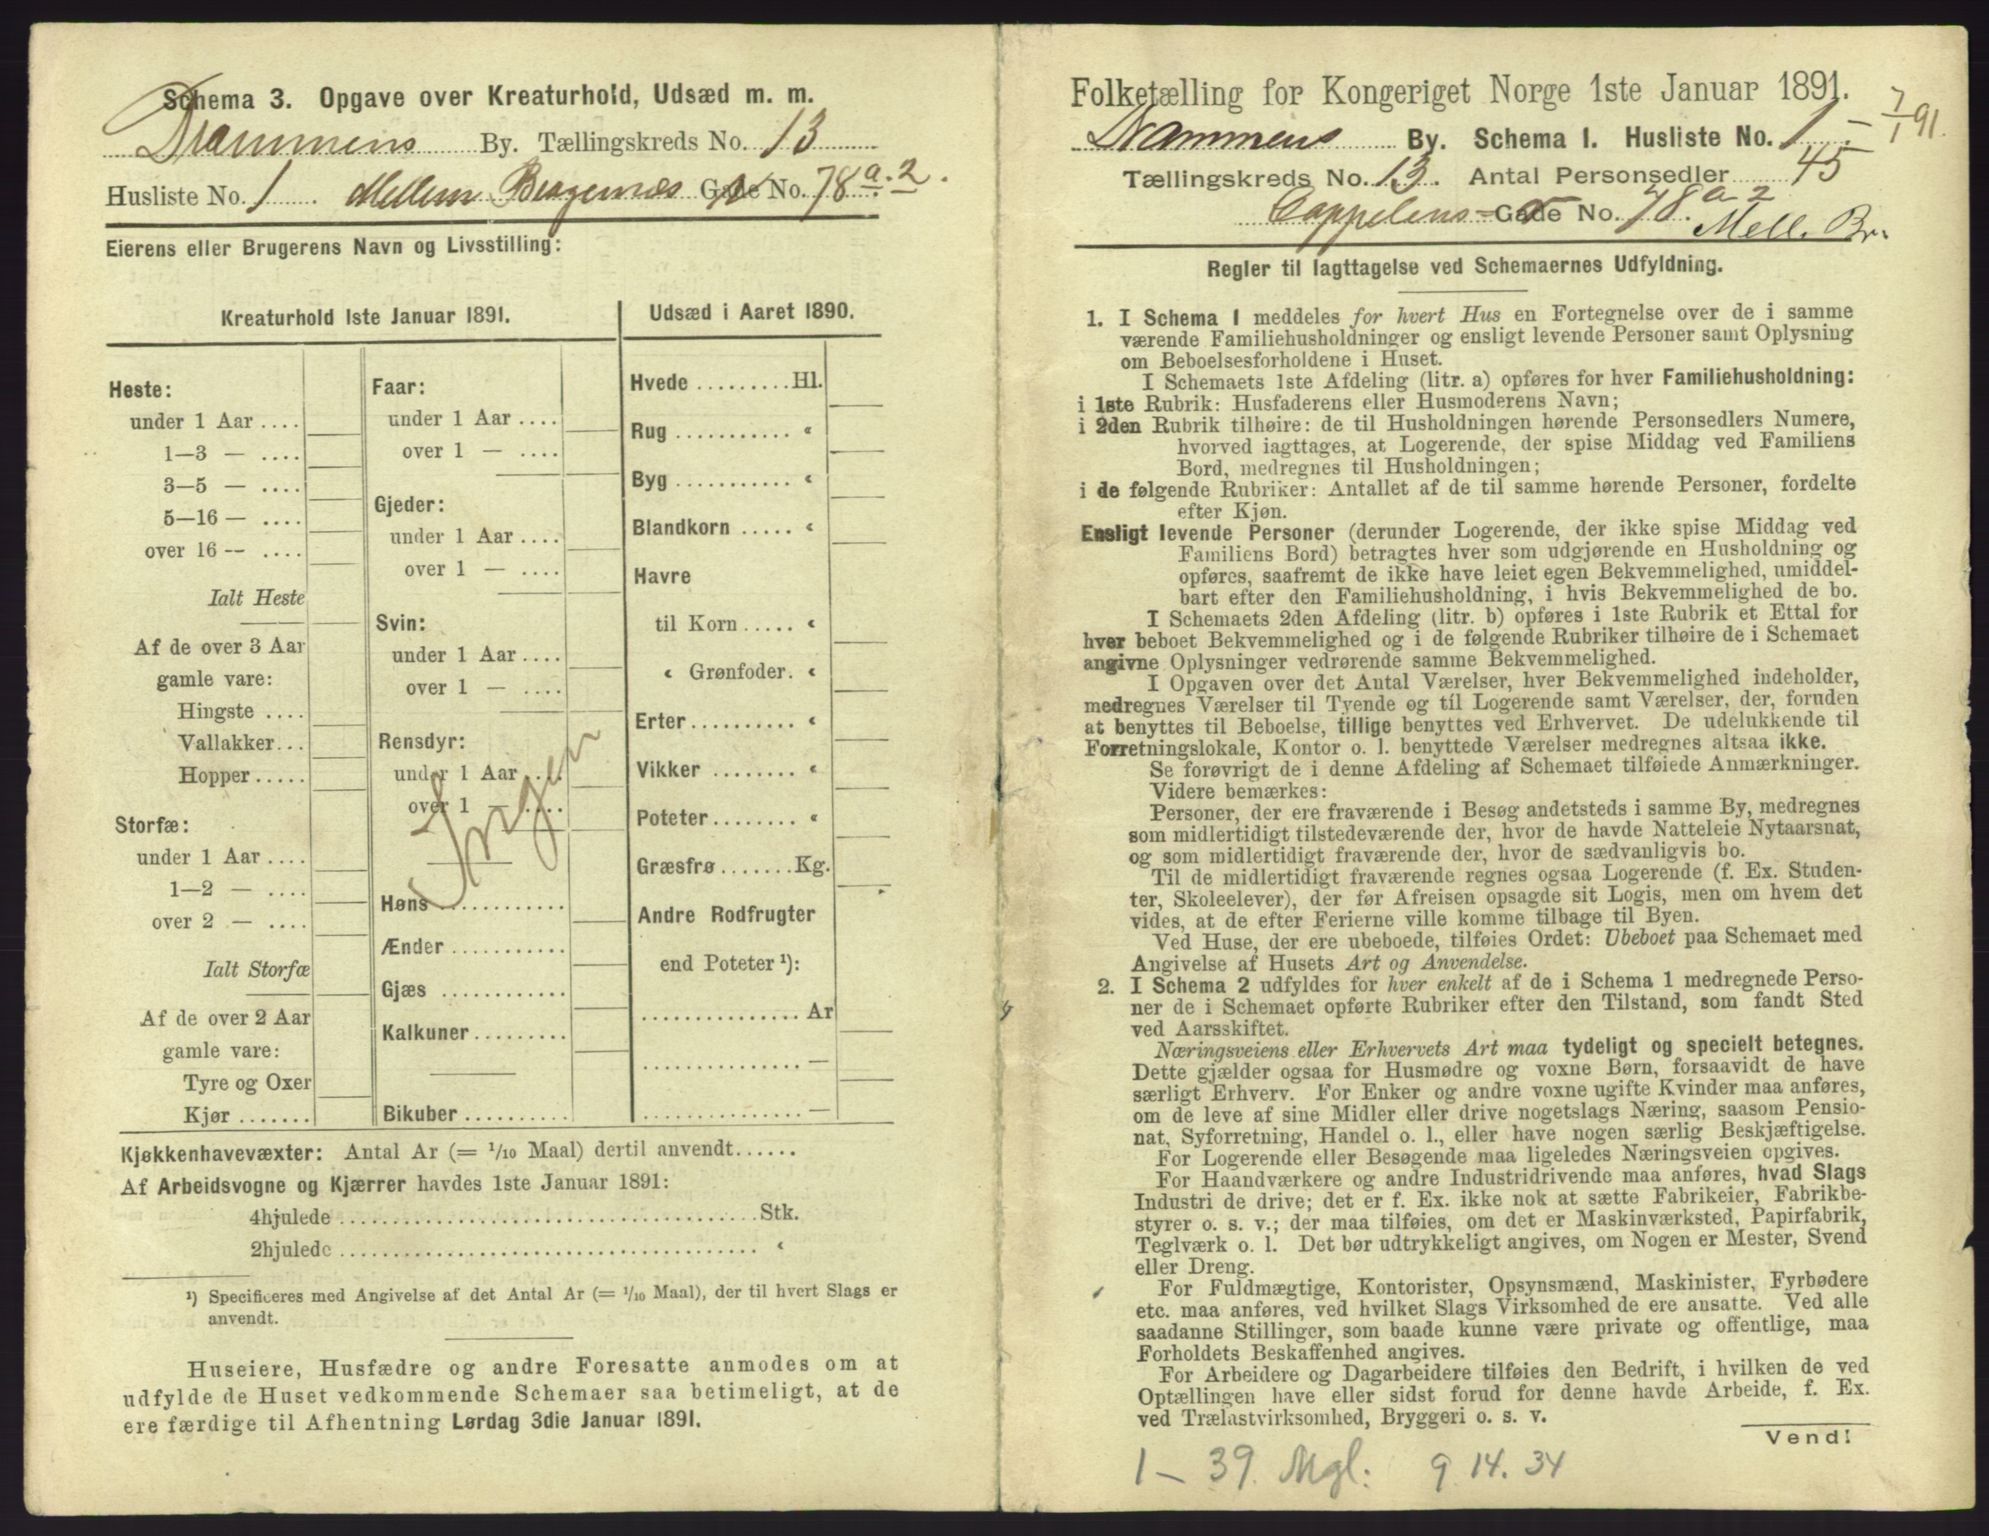 Schema 3. Opgave over Kreaturhold, Udsæd m. m.
Drammens By. Tællingskreds No. 13
Husliste No. 1 Mellem Bragernæs Gade No. 78 a. 2.
Eierens eller Brugerens Navn og Livsstilling:
Kreaturhold 1ste Januar 1891.
Heste:
under 1 Aar ....
1—3 — ....
3—5 — ....
5—16 — ....
over 16 -- ....
Ialt Heste
Af de over 3 Aar
gamle vare:
Hingste ....
Vallakker...
Hopper .....
Storfæ:
under 1 Aar ....
1—2 — ....
over 2 — ....
Ialt Storfæ
Af de over 2 Aar
gamle vare:
Tyre og Oxer
Kjør .......
Faar:
under 1 Aar ....
over 1 — ....
Gjeder:
under 1 Aar ....
over 1 — ....
Svin:
under 1 Aar ....
over 1 — ....
Rensdyr:
under 1 Aar ....
over 1 — ....
Ingen
Høns ............
Ænder ...........
Gjæs ............
Kalkuner .........
Bikuber ..........
Udsæd i Aaret 1890.
Hvede ......... Hl.
Rug ........... «
Byg ........... «
Blandkorn ..... «
Havre
til Korn ..... «
« Grønfoder. «
Erter .......... «
Vikker ........ «
Poteter ........ «
Græsfrø ....... Kg.
Andre Rodfrugter
end Poteter ¹):
............... Ar
............... —
............... —
Kjøkkenhavevæxter: Antal Ar (= 1/10 Maal) dertil anvendt ......
Af Arbeidsvogne og Kjærrer havdes 1ste Januar 1891:
4hjulede ........................................ Stk.
2hjulede ........................................ «
¹) Specificeres med Angivelse af det Antal Ar (= 1/10 Maal), der til hvert Slags er
anvendt.
Huseiere, Husfædre og andre Foresatte anmodes om at
udfylde de Huset vedkommende Schemaer saa betimeligt, at de
ere færdige til Afhentning Lørdag 3die Januar 1891.
Folketælling for Kongeriget Norge 1ste Januar 1891.
7/1 91.
Drammens By. Schema I. Husliste No. 1 —
Tællingskreds No. 13. Antal Personsedler 45
Cappelens Gade No. 78. a 2
Mell. Br.
Regler til Iagttagelse ved Schemaernes Udfyldning.
1. I Schema 1 meddeles for hvert Hus en Fortegnelse over de i samme
værende Familiehusholdninger og ensligt levende Personer samt Oplysning
om Beboelsesforholdene i Huset.
I Schemaets 1ste Afdeling (litr. a) opføres for hver Familiehusholdning:
i 1ste Rubrik: Husfaderens eller Husmoderens Navn;
i 2den Rubrik tilhøire: de til Husholdningen hørende Personsedlers Numere,
hvorved iagttages, at Logerende, der spise Middag ved Familiens
Bord, medregnes til Husholdningen;
i de følgende Rubriker: Antallet af de til samme hørende Personer, fordelte
efter Kjøn.
Ensligt levende Personer (derunder Logerende, der ikke spise Middag ved
Familiens Bord) betragtes hver som udgjørende en Husholdning og
opføres, saafremt de ikke have leiet egen Bekvemmelighed, umiddel-
bart efter den Familiehusholdning, i hvis Bekvemmelighed de bo.
I Schemaets 2den Afdeling (litr. b) opføres i 1ste Rubrik et Ettal for
hver beboet Bekvemmelighed og i de følgende Rubriker tilhøire de i Schemaet
angivne Oplysninger vedrørende samme Bekvemmelighed.
I Opgaven over det Antal Værelser, hver Bekvemmelighed indeholder,
medregnes Værelser til Tyende og til Logerende samt Værelser, der, foruden
at benyttes til Beboelse, tillige benyttes ved Erhvervet. De udelukkende til
Forretningslokale, Kontor o. l. benyttede Værelser medregnes altsaa ikke.
Se forøvrigt de i denne Afdeling af Schemaet tilføiede Anmærkninger.
Videre bemærkes:
Personer, der ere fraværende i Besøg andetsteds i samme By, medregnes
som midlertidigt tilstedeværende der, hvor de havde Natteleie Nytaarsnat,
og som midlertidigt fraværende der, hvor de sædvanligvis bo.
Til de midlertidigt fraværende regnes ogsaa Logerende (f. Ex. Studen-
ter, Skoleelever), der før Afreisen opsagde sit Logis, men om hvem det
vides, at de efter Ferierne ville komme tilbage til Byen.
Ved Huse, der ere ubeboede, tilføies Ordet: Ubeboet paa Schemaet med
Angivelse af Husets Art og Anvendelse.
2. I Schema 2 udfyldes for hver enkelt af de i Schema 1 medregnede Perso-
ner de i Schemaet opførte Rubriker efter den Tilstand, som fandt Sted
ved Aarsskiftet.
Næringsveiens eller Erhvervets Art maa tydeligt og specielt betegnes.
Dette gjælder ogsaa for Husmødre og voxne Børn, forsaavidt de have
særligt Erhverv. For Enker og andre voxne ugifte Kvinder maa anføres,
om de leve af sine Midler eller drive nogetslags Næring, saasom Pensio-
nat, Syforretning, Handel o. l., eller have nogen særlig Beskjæftigelse.
For Logerende eller Besøgende maa ligeledes Næringsveien opgives.
For Haandværkere og andre Industridrivende maa anføres, hvad Slags
Industri de drive; det er f. Ex. ikke nok at sætte Fabrikeier, Fabrikbe-
styrer o. s. v.; der maa tilføies, om det er Maskinværksted, Papirfabrik,
Teglværk o. l. Det bør udtrykkeligt angives, om Nogen er Mester, Svend
eller Dreng.
For Fuldmægtige, Kontorister, Opsynsmænd, Maskinister, Fyrbødere
etc. maa anføres, ved hvilket Slags Virksomhed de ere ansatte. Ved alle
saadanne Stillinger, som baade kunne være private og offentlige, maa
Forholdets Beskaffenhed angives.
For Arbeidere og Dagarbeidere tilføies den Bedrift, i hvilken de ved
Optællingen have eller sidst forud for denne havde Arbeide, f. Ex.
ved Trælastvirksomhed, Bryggeri o. s. v.
Vend!
1 — 39. Mgl: 9 14. 34